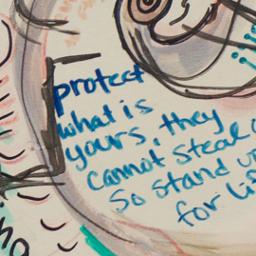 protect
what is
yours, they
cannot steal
So stand
for